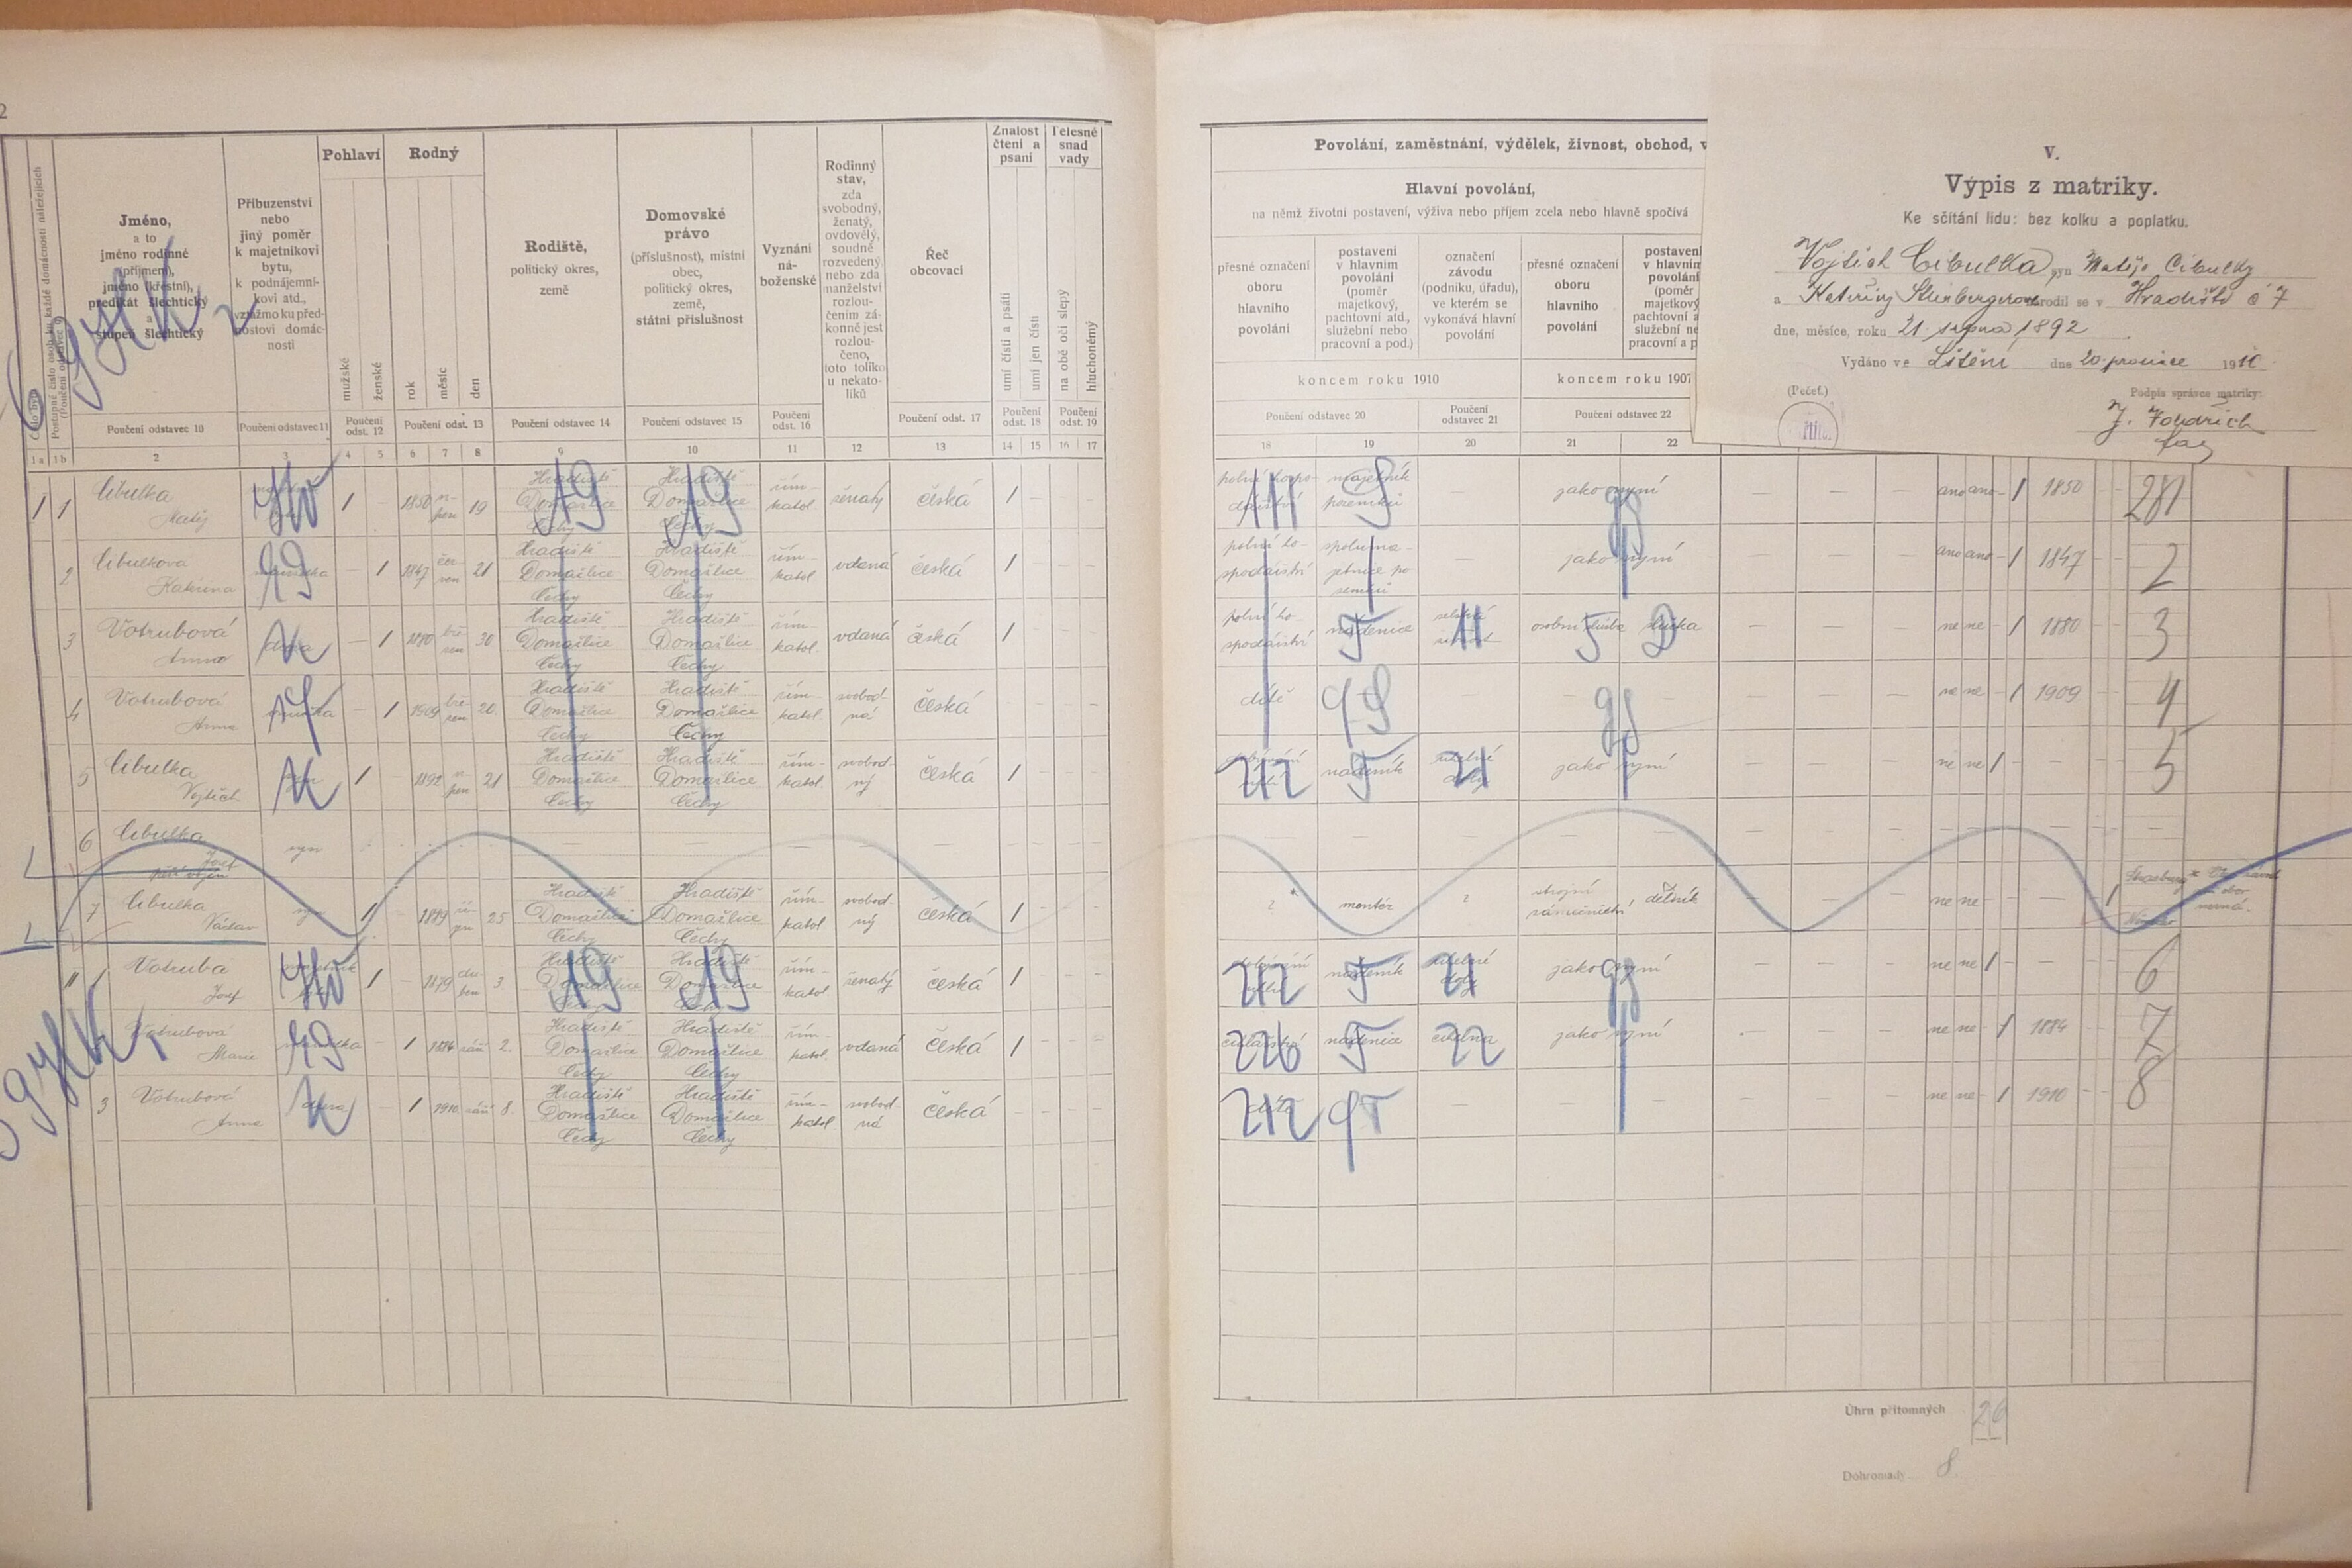 2
Číslo bytu
Postupné číslo osob ku každé domácnosti náležejících
(Poučení odstavec 9)
Jméno,
a to
jméno rodinné
(příjmení),
jméno (křestní),
predikát šlechtický
a
stupeň šlechtický
Poučení odstavec 10
Příbuzenství
nebo
jiný poměr
k majetníkovi
bytu,
k podnájemní-
kovi atd.,
vztažmo ku před-
nostovi domác-
nosti
Poučení odstavec 11
Pohlaví
mužské
ženské
Poučení
odst. 12
Rodný
rok
měsíc
den
Poučení odst. 13
Rodiště,
politický okres,
země
Poučení odstavec 14
Domovské
právo
(příslušnost), místní
obec,
politický okres,
země,
státní příslušnost
Poučení odstavec 15
Vyznání
ná-
boženské
Poučení
odst. 16
Rodinný
stav,
zda
svobodný,
ženatý,
ovdovělý,
soudně
rozvedený
nebo zda
manželství
rozlou-
čením zá-
konně jest
rozlou-
čeno,
toto toliko
u nekato-
líků
Řeč
obcovací
Poučení odst. 17
Znalost
čtení a
psaní
umí čísti a psáti
umí jen čísti
Poučení
odst. 18
Tělesné
snad
vady
na obě oči slepý
hluchoněmý
Poučení
odst. 19
1a 1b 2 3 4 5 6 7 8 9 10 11 12 13 14 15 16 17
Povolání, zaměstnání, výdělek, živnost, obchod, v
Hlavní povolání,
na němž životní postavení, výživa nebo příjem zcela nebo hlavně spočívá
přesné označení
oboru
hlavního
povolání
postavení
v hlavním
povolání
(poměr
majetkový,
pachtovní atd.,
služební nebo
pracovní a pod.)
označení
závodu
(podniku, úřadu),
ve kterém se
vykonává hlavní
povolání
přesné označení
oboru
hlavního
povolání
postavení
v hlavním
povolání
(poměr
majetkový
pachtovní a
služební ne
pracovní a p
koncem roku 1910
koncem roku 1907
Poučení odstavec 20
Poučení
odstavec 21
Poučení odstavec 22
18 19 20 21 22
V.
Výpis z matriky.
Ke sčítání lidu: bez kolku a poplatku.
Vojtěch Cibulka, syn Matěje Cibulky
a Kateřiny narodil se v Hradišti č 7
dne, měsíce, roku 21. srpna 1892
Vydáno ve dne 20. prosince 1910
(Pečeť.)
Podpis správce matriky:
1 1 Cibulka Matěj 1 – 1850 srpen 19 Hradiště Domažlice Čechy Hradiště Domažlice Čechy řím- katol. ženatý česká 1 – – –
polní hospodářství majetník pozemků – jako nyní – – – ano ano – 1 1850 – – 281
2 Cibulkova Kateřina manželka – 1 1847 červen 21 Hradiště Domažlice Čechy Hradiště Domažlice Čechy řím- katol vdaná česká 1 – – –
polní hospodářství spolumajetnice pozemků – jako nyní – – – ano ano – 1 1847 – – 2
3 Votrubová Anna – 1 1880 březen 30 Hradiště Domažlice Čechy Hradiště Domažlice Čechy řím- katol. vdaná česká 1 – – –
polní hospodářství nádenice osobní služba služka – – – ne ne – 1 1880 – – 3
4 Votrubová Anna vnučka – 1 1909 březen 20. Hradiště Domažlice Čechy Hradiště Domažlice Čechy řím- katol. svobodná česká – – – –
dítě – – – – – – ne ne – 1 1909 – – 4
5 Cibulka Vojtěch 1 – 1892 srpen 21 Hradiště Domažlice Čechy Hradiště Domažlice Čechy řím- katol. svobodný česká 1 – – –
nádeník jako nyní – – – ne ne 1 – – – – 5
6 Cibulka Josef syn
7 Cibulka Václav syn 1 – 1889 25 Hradiště Domažlice Čechy Hradiště Domažlice Čechy řím- katol svobodný česká 1 – – –
? montér ? strojní zámečnictví dělník – – – ne ne – – – 1
II 1 Votruba Josef 1 – 1879 duben 3. Hradiště Domažlice Čechy Hradiště Domažlice Čechy řím- katol ženatý česká 1 – – –
nádeník jako nyní – – – ne ne 1 – – – – 6
Votrubová Marie manželka – 1 1884 září 2. Hradiště Domažlice Čechy Hradiště Domažlice Čechy řím- katol. vdaná česká 1 – – –
cihlářství nádenice cihelna jako nyní – – – ne ne – 1 1884 – – 7
3 Votrubová Anna dcera – 1 1910 září 8. Hradiště Domažlice Čechy Hradiště Domažlice Čechy řím- katol svobodná česká – – – –
dítě – – – – – – ne ne – 1 1910 – – 8
Úhrn přítomných 2 6
Dohromady 8.